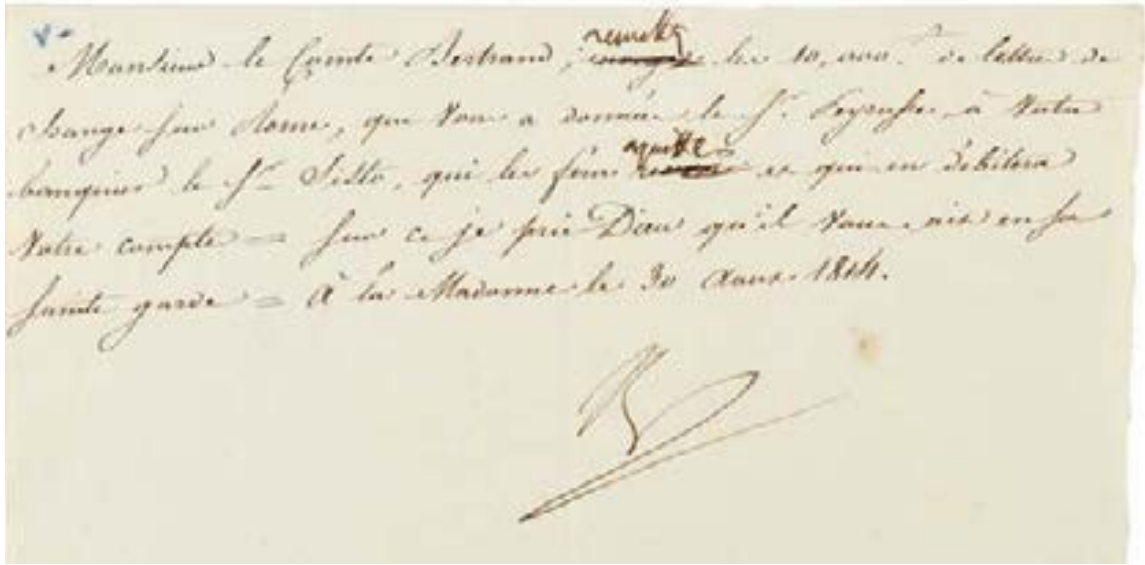 Monsieur le Comte Bertrand, remettez les 10,000 f de lettre de
change sur Rome, que vous a donnée le Sr. Peyrusse, à votre
banquier le Sr. qui les fera et qui en débitera
votre compte = Sur ce je prie Dieu qu'il vous ait en sa
sainte garde = à la Madonne le 30 Aoust 1814.